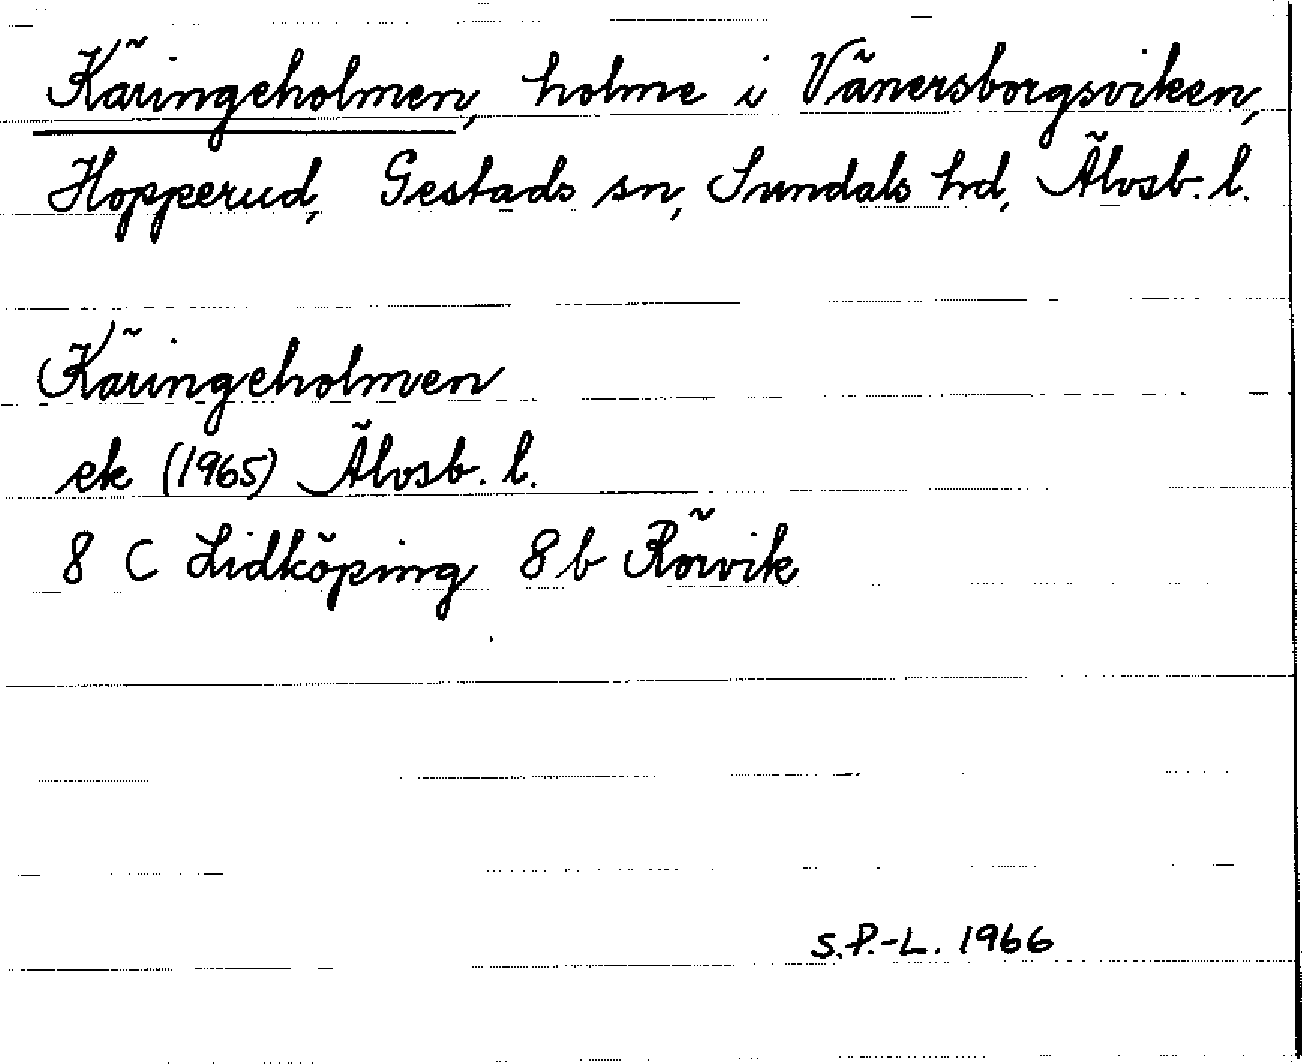 Käringeholmen, holme i Vänersborgsviken,
Hopperud, Gestads sn, Sundals hd, Älvsb. l.
Käringeholmen
ek (1965) Älvsb. l.
8 C Lidköping 8 b Rörvik
S.P.-L. 1966